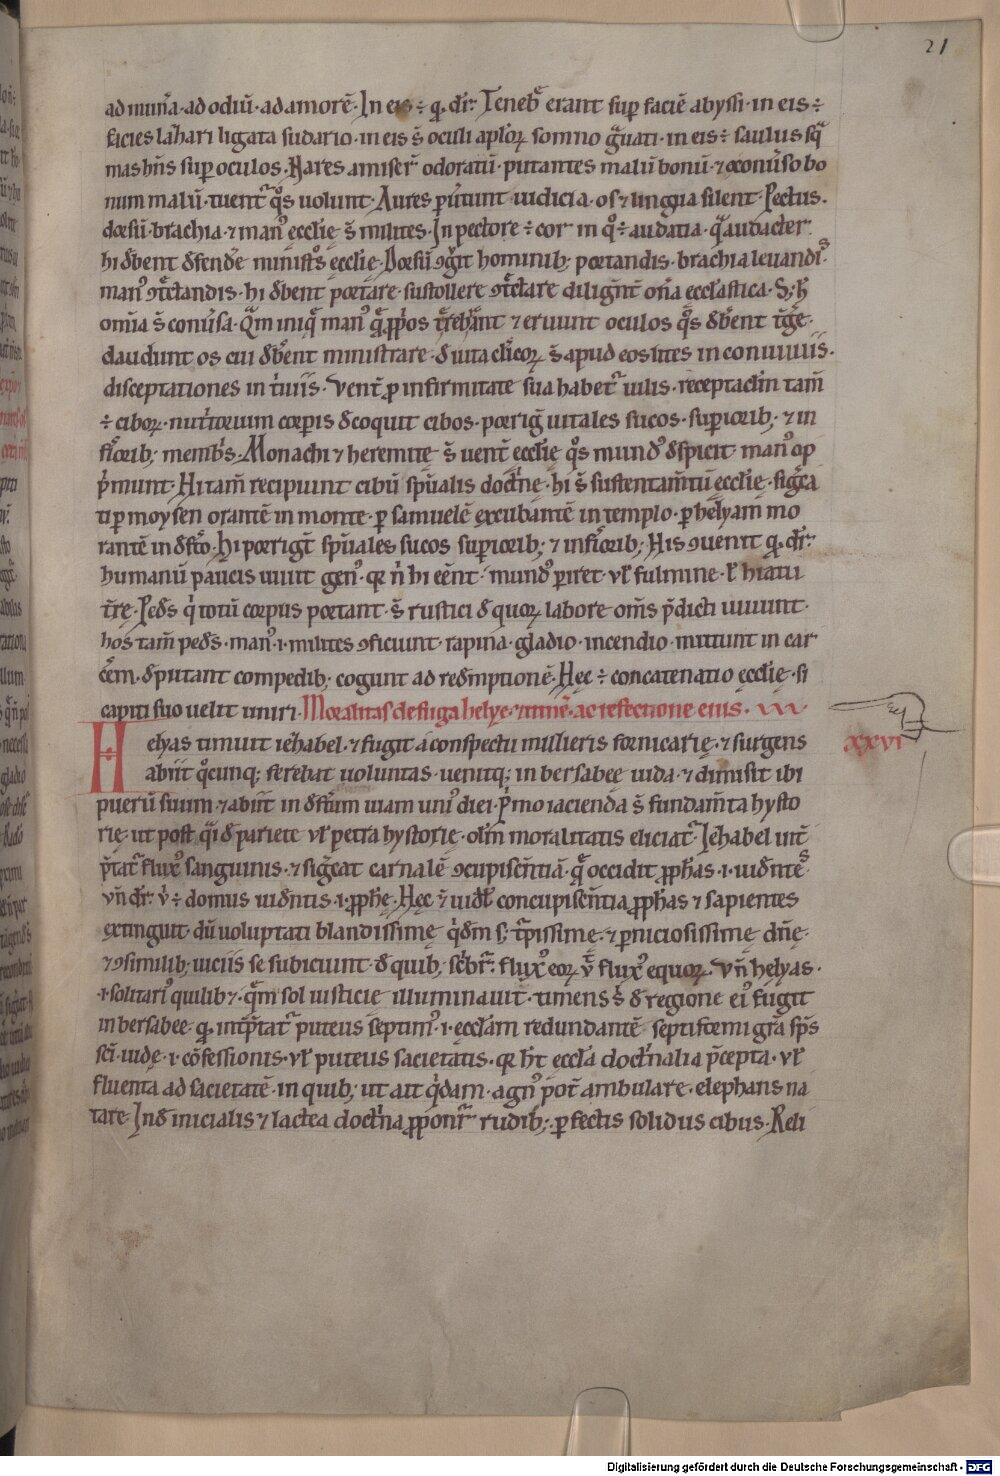 21
ad munͣa · ad odiū · ad amorē · In eis ÷ q̨ d̄r · Tenebͤ erant sup̱ faciē abyssi · in eis ÷
facies lazari ligata sudario · in eis s̄ oculi apl̄oꝝ somno gͣuati · in eis ÷ saulus sqͣ
mas hn̄s sup̱ oculos · Nares amiser̄ odoratū · putantes malū bonū · ⁊ econũso bo
num malū · tuentͬ qͦs uolunt · Aures ꝑuͥtunt iudicia · os ⁊ lingua silent · Pectus ·
dorsū · brachia · ⁊ manꝰ ecclie s̄ milites · In pectore ÷ cor in qͦ ÷ audatia · qͣ audacter
hi dͤbent dͤfendͤe ministͦs ecclie · Dorsū ꝯgͥt hominib; portandis · brachia leuandis ·
manꝰ ꝯtͤctandis · hi dͤbent portare · sustollere ꝯtͤctare diligñt oīa ecclastica · S; h̄
omīa s̄ conũsa · Qͣm iniqͣ manꝰ qͣ ꝓp̄os tͤrebͣnt ⁊ eruunt oculos qͦs dͤbent tͤgͤe ·
claudunt os cui dͤbent ministrare · dͤ uita cl̄icoꝝ s̄ apud eos lites in conuiuiis ·
disceptationes in tͥuiis · Ventͤ ꝓ infirmitate sua habetͬ uilis · receptacl̄m tam̄
÷ ciboꝝ · nutͥtorium corꝑis dͤcoquit cibos · porrig̃ uitales sucos · suꝑiorib; · ⁊ in
fͤiorib; membͥs · Monachi ⁊ heremite s̄ uentͤ ecclie qͦs mundꝰ dͤspicit manꝰ op
pͥmunt · Hi tam̄ recipiunt cibū sp̄ualis doctͥne · hi s̄ sustentam̄tū ecclie · sigͣca
ti ꝑ moysen orantē in monte · ꝑ samuelē excubantē in templo · ꝑ helyam mo
rantē in dͤsͤto · Hi porrigt̄ sp̄uales sucos suꝑiorib; · ⁊ infͤiorib; · His ꝯuenit q̨ d̄r ·
humanū paucis uiuit genꝰ · qͬ nͥ hi eēnt · mundꝰ ꝑiret · vl̄ fulmine · l̄ hiatu
tͤre · Pedͤs qͥ totū corpus portant · s̄ rustici dͤ quoꝝ labore om̄s p̄dicti uiuunt ·
hos tam̄ pedͤs · manꝰ · i · milites ꝯficiunt · rapina · gladio · incendio · mittunt in car
cͤem · dͤputant compedib; cogunt ad redͤmptionē · Hec ÷ concatenatio ecclie · si
capiti suo uelit uniri · Moralitas de fuga helye · ⁊ timē · ac refectione eius ·
Helyas timuit iezabel · ⁊ fugit a conspectu mulieris fornicarię · ⁊ surgens
xxvi
abiit qͦcunq; ferebat uoluntas · uenitq; in bersabee iuda · ⁊ dimisit ibi
puerū suum · ⁊ abiit in dͤsͤtum uiam uniꝰ diei · Pͥmo iacienda s̄ fundam̄ta hysto
rię · ut post qͣi dͤ pariete vl̄ petra hystorię · olm̄ moralitatis eliciatͬ · Iezabel int̄
p̄tatͬ fluxꝰ sanguinis · ⁊ sigͣcat carnalē ꝯcupiscn̄tiā · qͣ occidit ꝓph̄as · i · uidn̄tes ·
vn̄ d̄r · vͥ ÷ domus uidn̄tis · i · ꝓphe · Hec ÷ uidl̄ concupiscn̄tia ꝓph̄as ⁊ sapientes
extinguit · dū uoluptati blandissimę qͥdm̄ s; tͬpissimę · ⁊ ꝑniciosissimę dn̄ę
⁊ ꝯsimilib; uiciis se subiciunt · dͤ quib; scͥbtͬ · fluxꝰ eoꝝ vͭ fluxꝰ equoꝝ · Vn̄ helyas ·
· i · solitariꝰ quilib⁊ · qͣm sol iusticie illuminauit · timens s̄ dͤ regione eiꝰ fugit
in bersabee · q̨ intͤp̄tatͬ puteus septimꝰ · i · eccl̄am redundantē septiformi grͣa sp̄s
sc̄i · iudę · i · cōfessionis · vl̄ puteus sacietatis · qͬ h̄t eccl̄a doctͥnalia p̄cepta · vl̄
fluenta ad sacietatē · in quib; ut ait qͥdam · agnꝰ potͤ ambulare · elephans na
tare · Indͤ inicialis ⁊ lactea doctͥna ꝓponitͬ rudib; · ꝑfectis solidus cibus · Reli
Digitalisierung gefördert durch die Deutsche Forschungsgemeinschaft - DFG